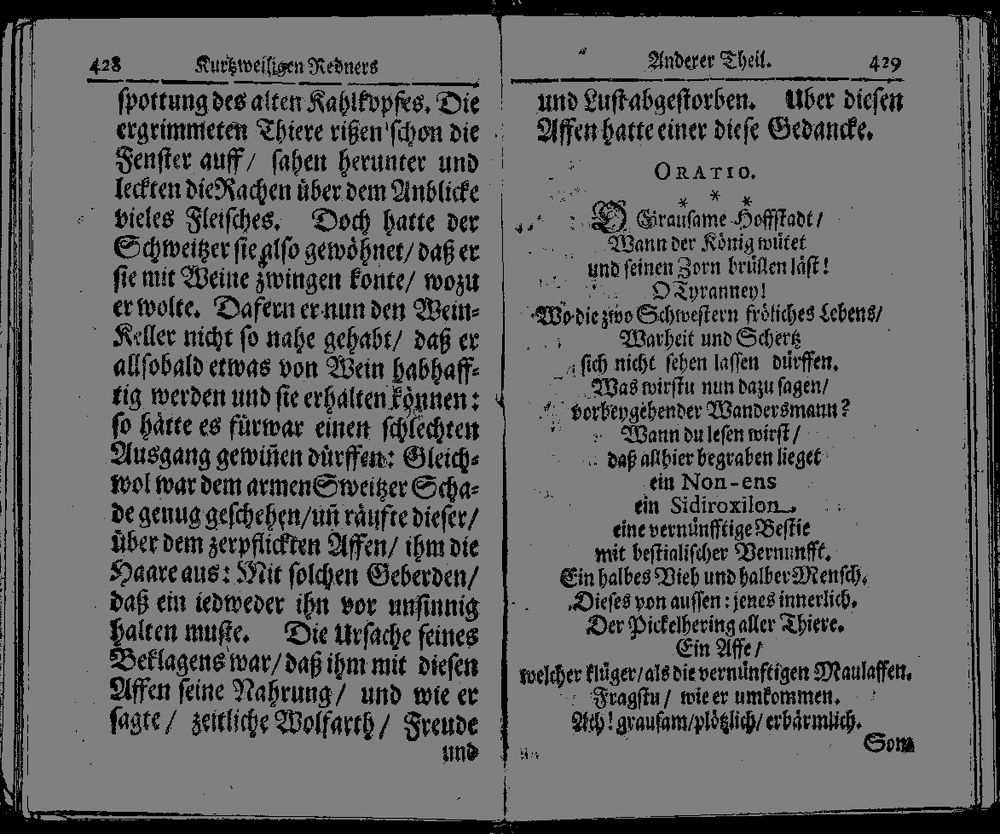 428 Kurtzweiligen Redners
spottung des alten Kahlkopfes. Die
ergrimmeten Thiere rißen schon die
Fenster auff/ sahen herunter und
leckten die Rachen über dem Anblicke
vieles Fleisches. Doch hatte der
Schweitzer sie also gewöhnet/ daß er
sie mit Weine zwingen konte/ wozu
er wolte. Dafern er nun den Wein-
Keller nicht so nahe gehabt/ daß er
allsobald etwas von Wein habhaff-
tig werden und sie erhalten können:
so hätte es fürwar einen schlechten
Ausgang gewiñen dürffen: Gleich-
wol war dem armen Sweitzer Scha-
de genug geschehen/ uñ räufte dieser/
über dem zerpflickten Affen/ ihm die
Haare aus: Mit solchen Geberden/
daß ein iedweder ihn vor unsinnig
halten muste. Die Ursache seines
Beklagens war/ daß ihm mit diesen
Affen seine Nahrung/ und wie er
sagte/ zeitliche Wolfarth/ Freude
und
Anderer Theil. 429
und Lust abgestorben. Uber diesen
Affen hatte einer diese Gedancke.
ORATIO.
* * *
O Grausame Hoffstadt/
Wann der König wütet
und seinen Zorn brüllen läst!
O Tyranney!
Wo die zwo Schwestern fröliches Lebens/
Warheit und Schertz
sich nicht sehen lassen dürffen.
Was wirstu nun dazu sagen/
vorbeygehender Wandersmann?
Wann du lesen wirst/
daß allhier begraben lieget
ein Non-ens
ein Sidiroxilon.
eine vernünfftige Bestie
mit bestialischer Vernunfft.
Ein halbes Vieh und halber Mensch.
Dieses von aussen: jenes innerlich.
Der Pickelhering aller Thiere.
Ein Affe/
welcher klüger/ als die vernünftigen Maulaffen.
Fragstu/ wie er umkommen.
Ach! grausam/ plötzlich/ erbärmlich.
Som